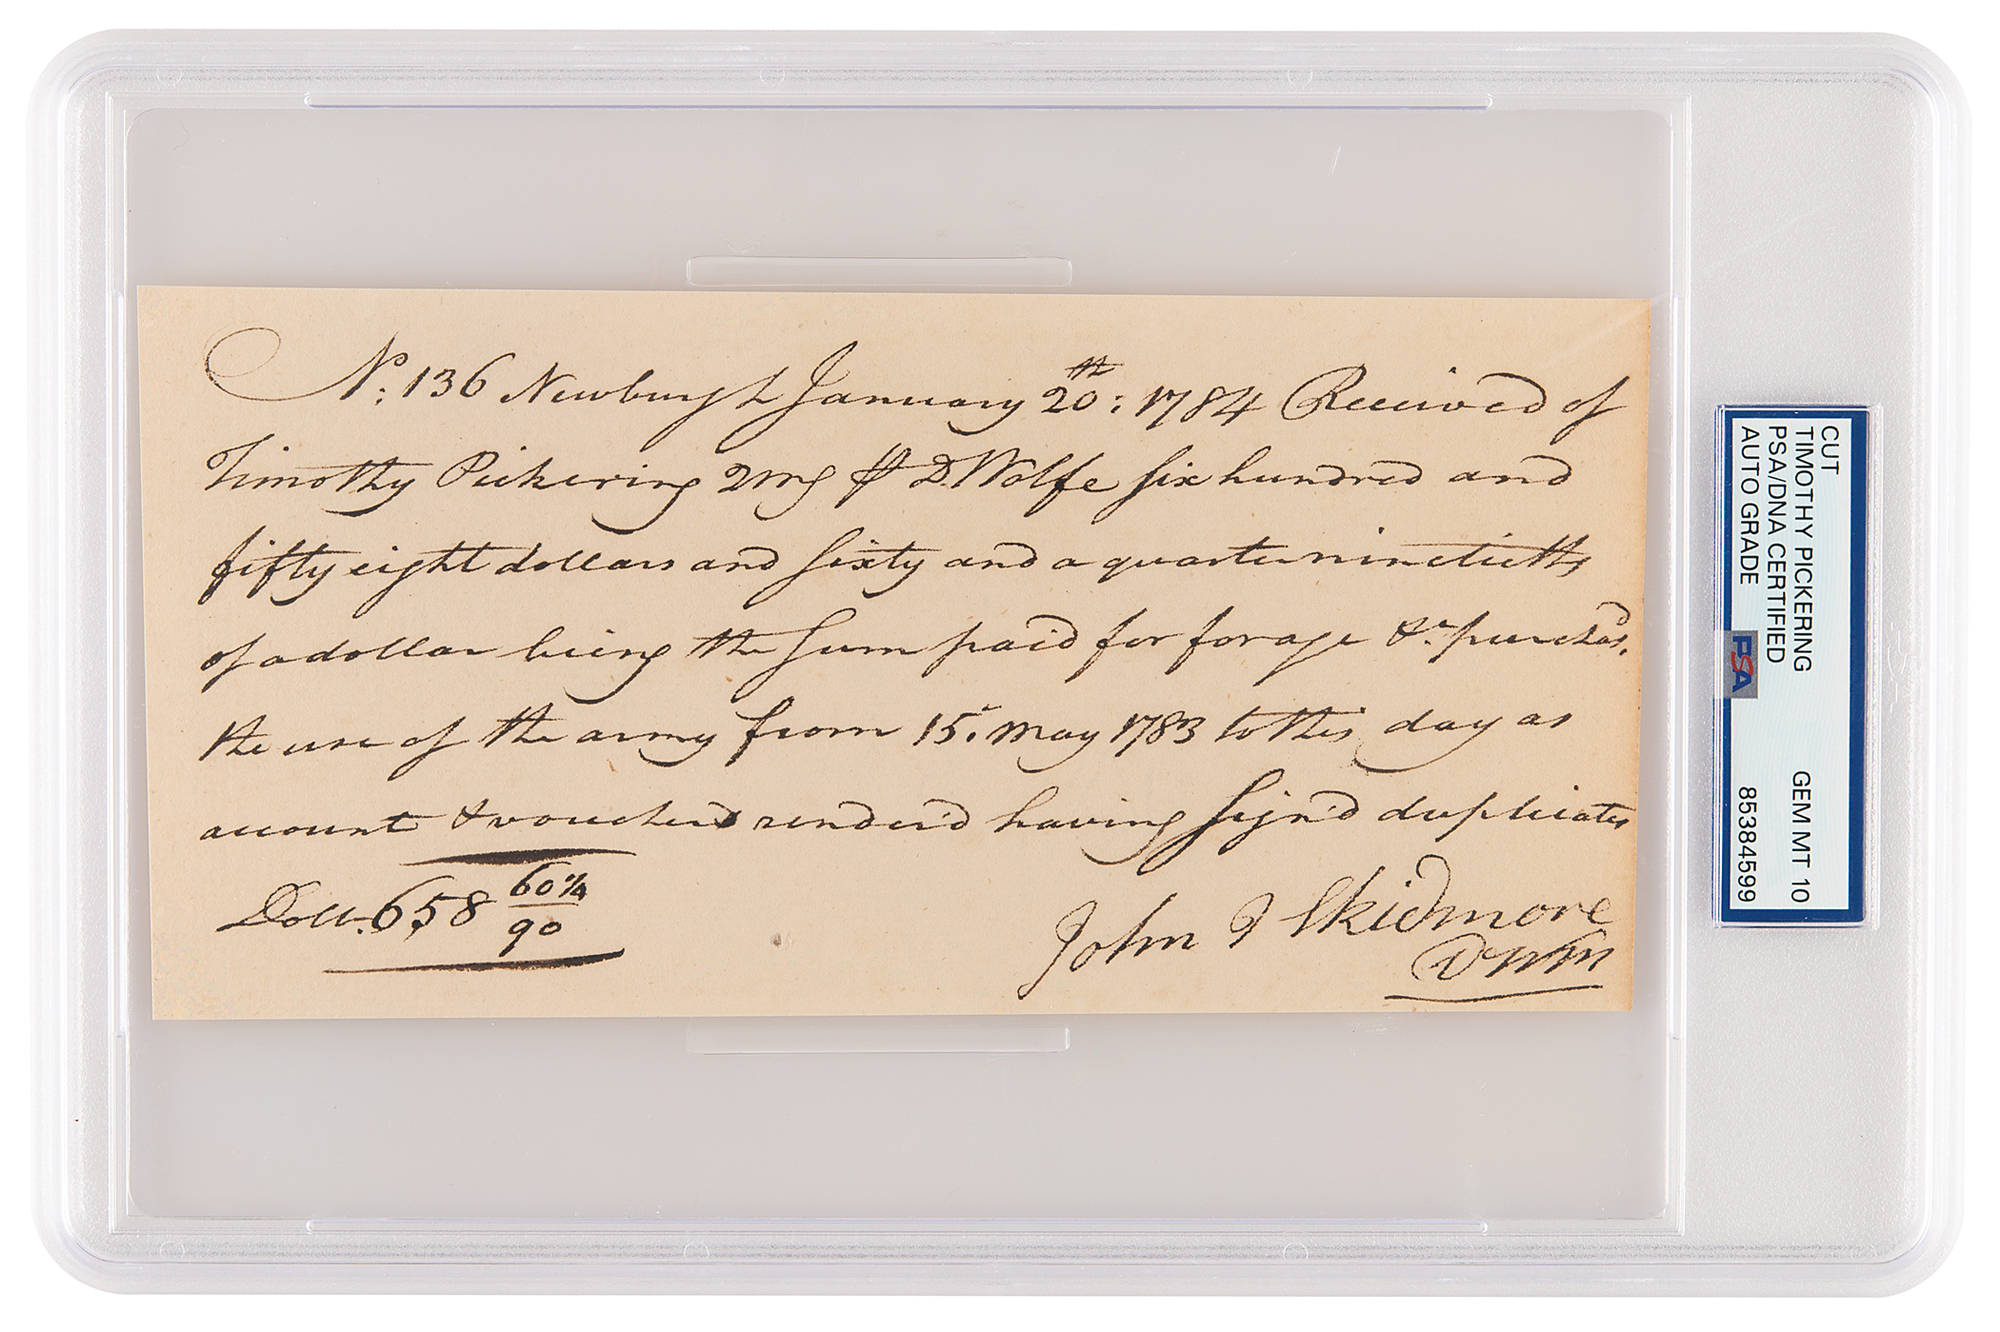 No: 136 Newburgh January 20th: 1784 Received of
Timothy Pickering 2mg ⅌ D. Wolfe six hundred and
fifty eight dollars and sixty and a quarter ninetieths
of a dollar being the sum paid for forage &c purchas'd.
the use of the army from 15. May 1783 to this day as
account & vouchers render'd having sign'd duplicates
Doll. 658 60 1/4
90
John J Skidmore
DWM
CUT
TIMOTHY PICKERING
PSA/DNA CERTIFIED
AUTO GRADE
PSA
GEM MT 10
85384599